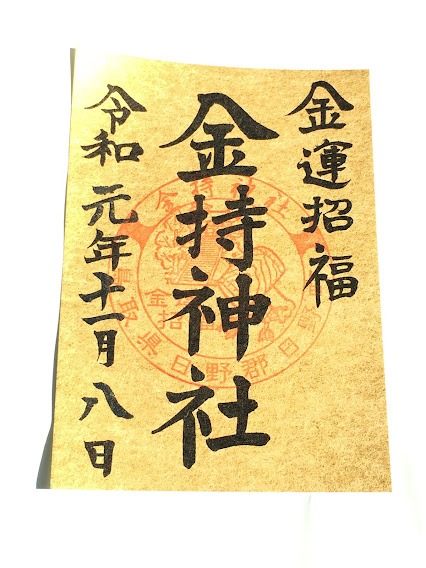 金運招福
金持神社
令和元年十一月八日
金持神社
鳥取県日野郡日野
金拾